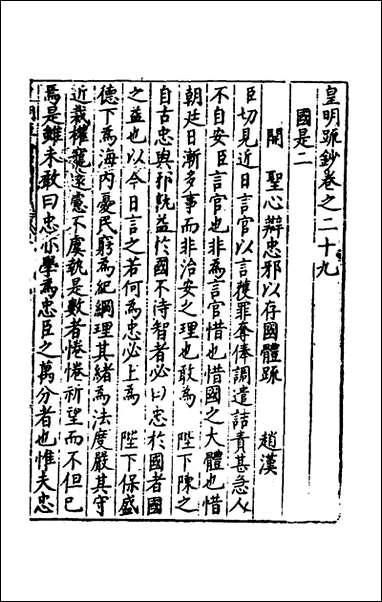 皇明疏鈔卷之二十九
國是二
開 聖心辯忠邪以存國體疏 趙漢
臣切見近日言官以言獲罪奪俸調遣詰責甚急人
不自安臣言官也非為言官惜也惜國之大體也惜
朝廷日漸多事而非治安之理也敢為 陛下陳之
自古忠與邪既益於國不待智者必曰忠於國者國
之益也以今日言之若何為忠必上為 陛下保盛
德下為海內憂民窮為紀綱理其緒為法度嚴其守
近裁權寵遠慮不虞執是數者惓惓祈望而不但已
焉是雖未敢曰忠亦學為忠臣之萬分者也惟夫忠